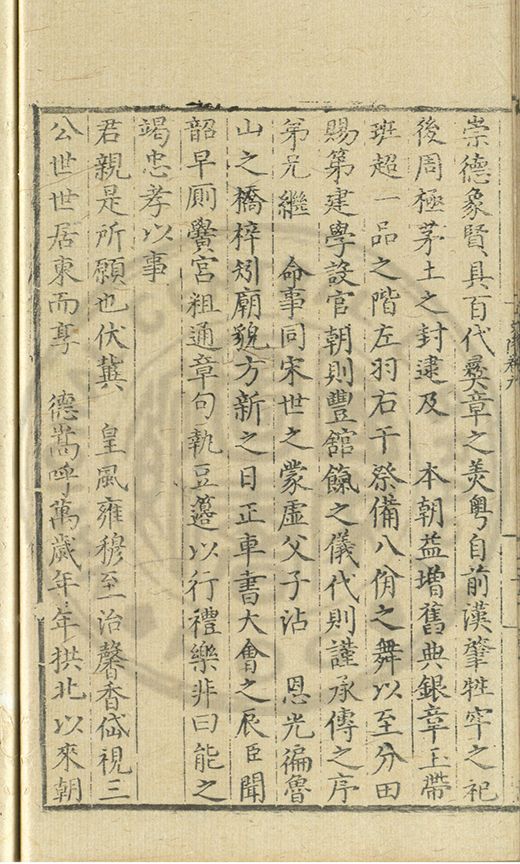 崇德象賢具百代彜章之羙粤自前漢肇牲牢之祀
後周極茅土之封逮及 本朝益增舊典銀章玉帶
班超一品之階左羽右干祭備八佾之舞以至分田
賜第建學設官朝則豐舘餼之儀代則謹承傳之序
第兄繼 命事同宋世之蒙虚父子沾 恩光徧魯
山之橋梓矧廟貌方新之日正車書大會之辰臣聞
韶早厠黌宮粗通章句執豆籩以行禮樂非曰能之
竭忠孝以事
君親是所願也伏兾 皇風雍穆至治馨香俻視三
公世世居東而享 德嵩呼萬歲年年拱北以來朝